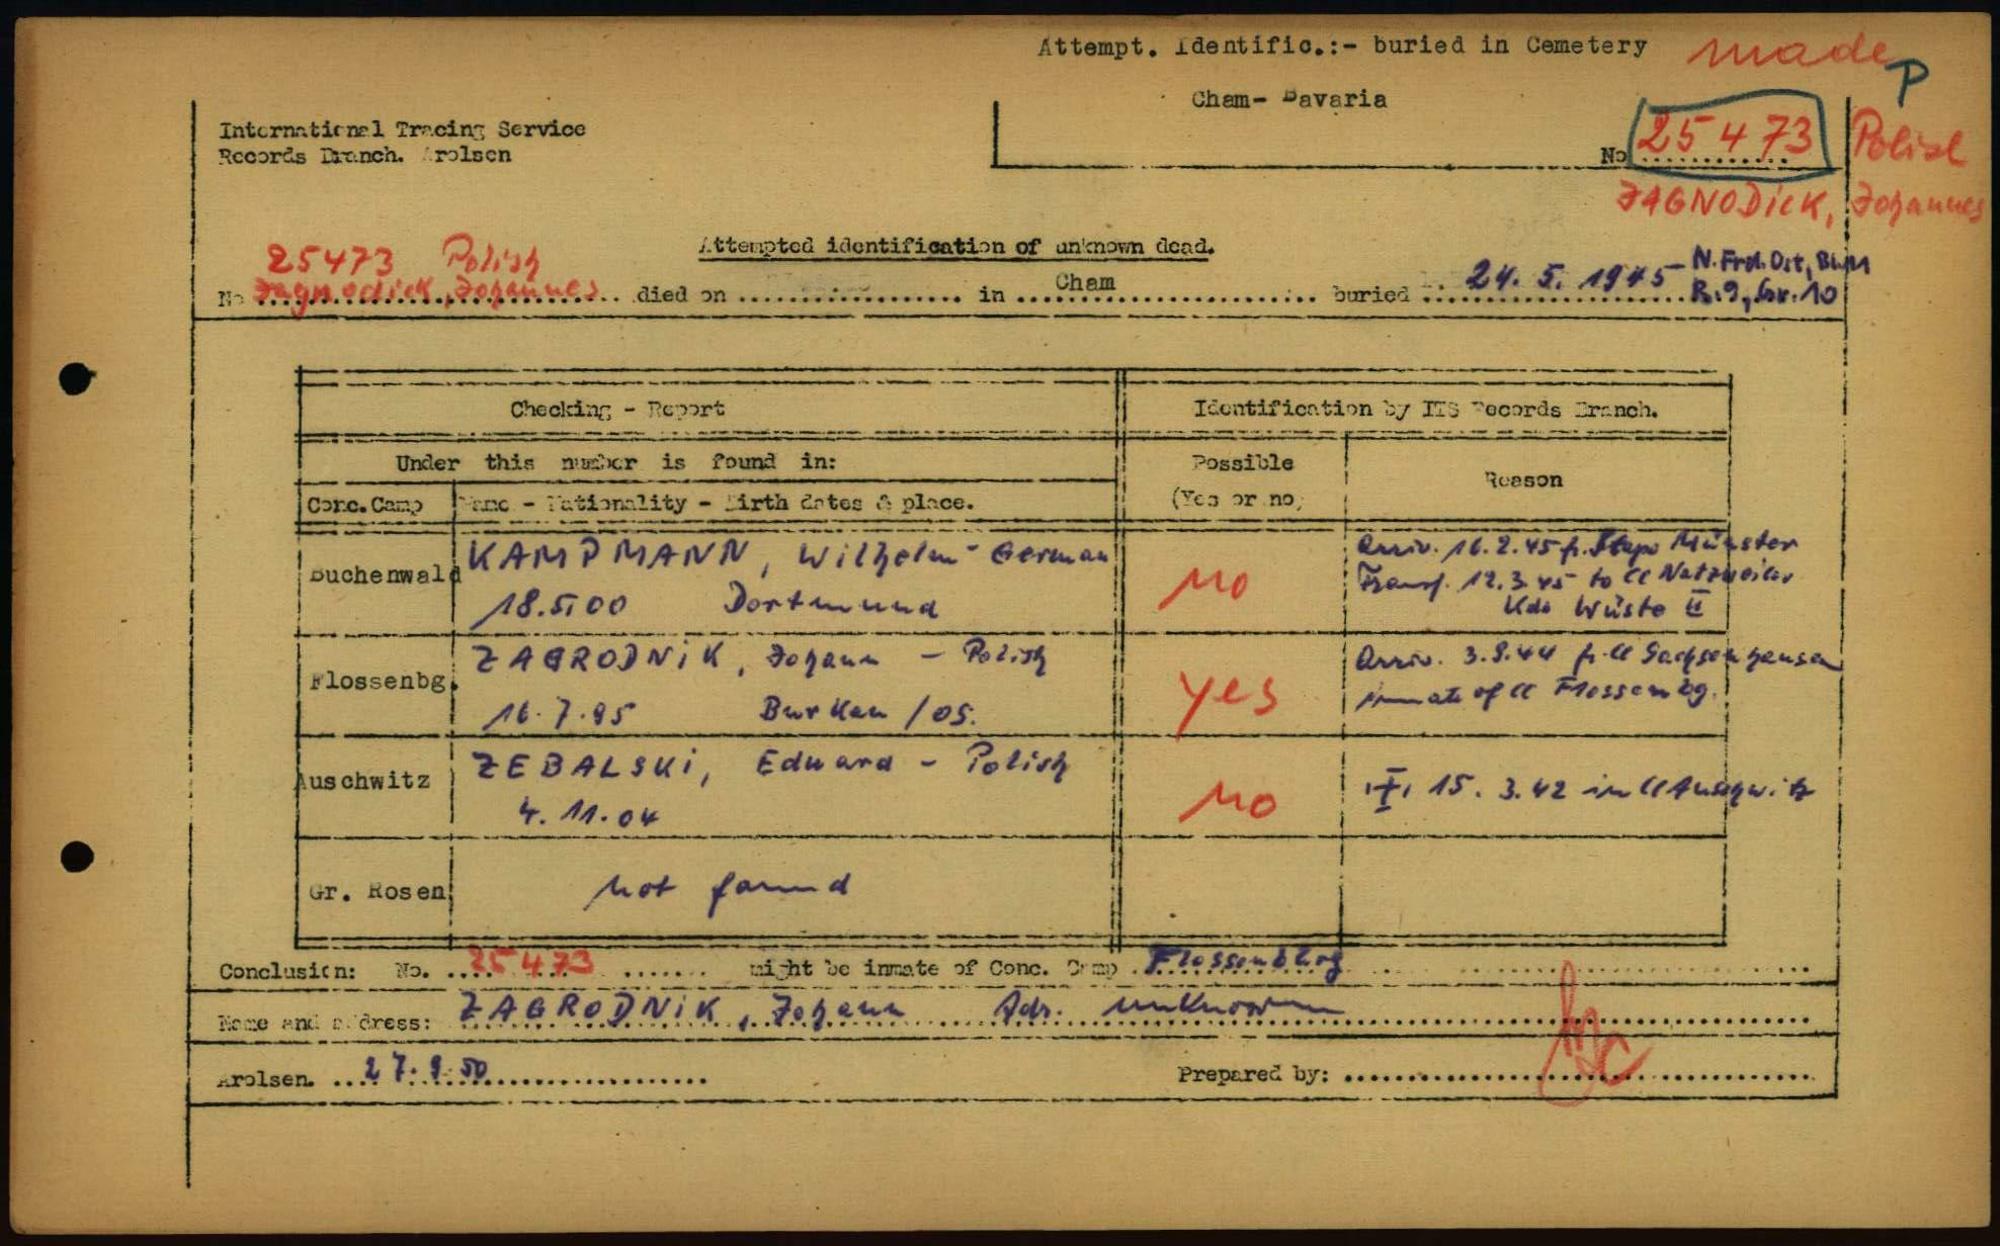 Attempt. Identific.:- buried in Cemetery made
P
Cham- Bavaria
International Tracing Service
Records Branch. Arolsen
No 25473 Polish
JAGNODICK, Johannes
Attempted identification of unknown dead.
25473 Polish
No Jagnodick, Johannes died on in Cham buried 24. 5. 1945 N. Frd. Ost,
R. 9, Gr. 10
Checking - Report Identification by ITS Records Branch.
Under this number is found in: Possible Reason
Conc.Camp Name - Nationality - Birth dates & place. (Yes or no)
Buchenwald KAMPMANN, Wilhelm - German no Arriv. 16.2.45 fr. Stapo Münster
18.5.00 Dortmund Transf. 12.3.45 to CC Natzweiler
Kdo Wüste II
Flossenbg. ZAGRODNIK, Johann - Polish yes Arriv. 3.9.44 fr. CC Sachsenhausen
16.7.95 Burkau /OS. inmate of CC Flossenbg.
Auschwitz ZEBALSKI, Eduard - Polish no 15. 3. 42 in CC Auschwitz
4. 11. 04
Gr. Rosen not found
Conclusion: No. 25473 might be inmate of Conc. Camp Flossenbürg
Name and address: ZAGRODNIK, Johann Adr. unknown
Arolsen. 27.9.50 Prepared by: